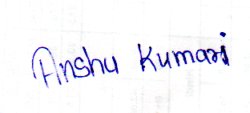 Anshu Kumari